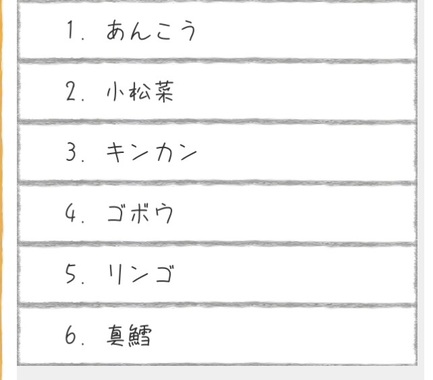 1. あんこう
2. 小松菜
3. キンカン
4. ゴボウ
5. リンゴ
6. 真鱈